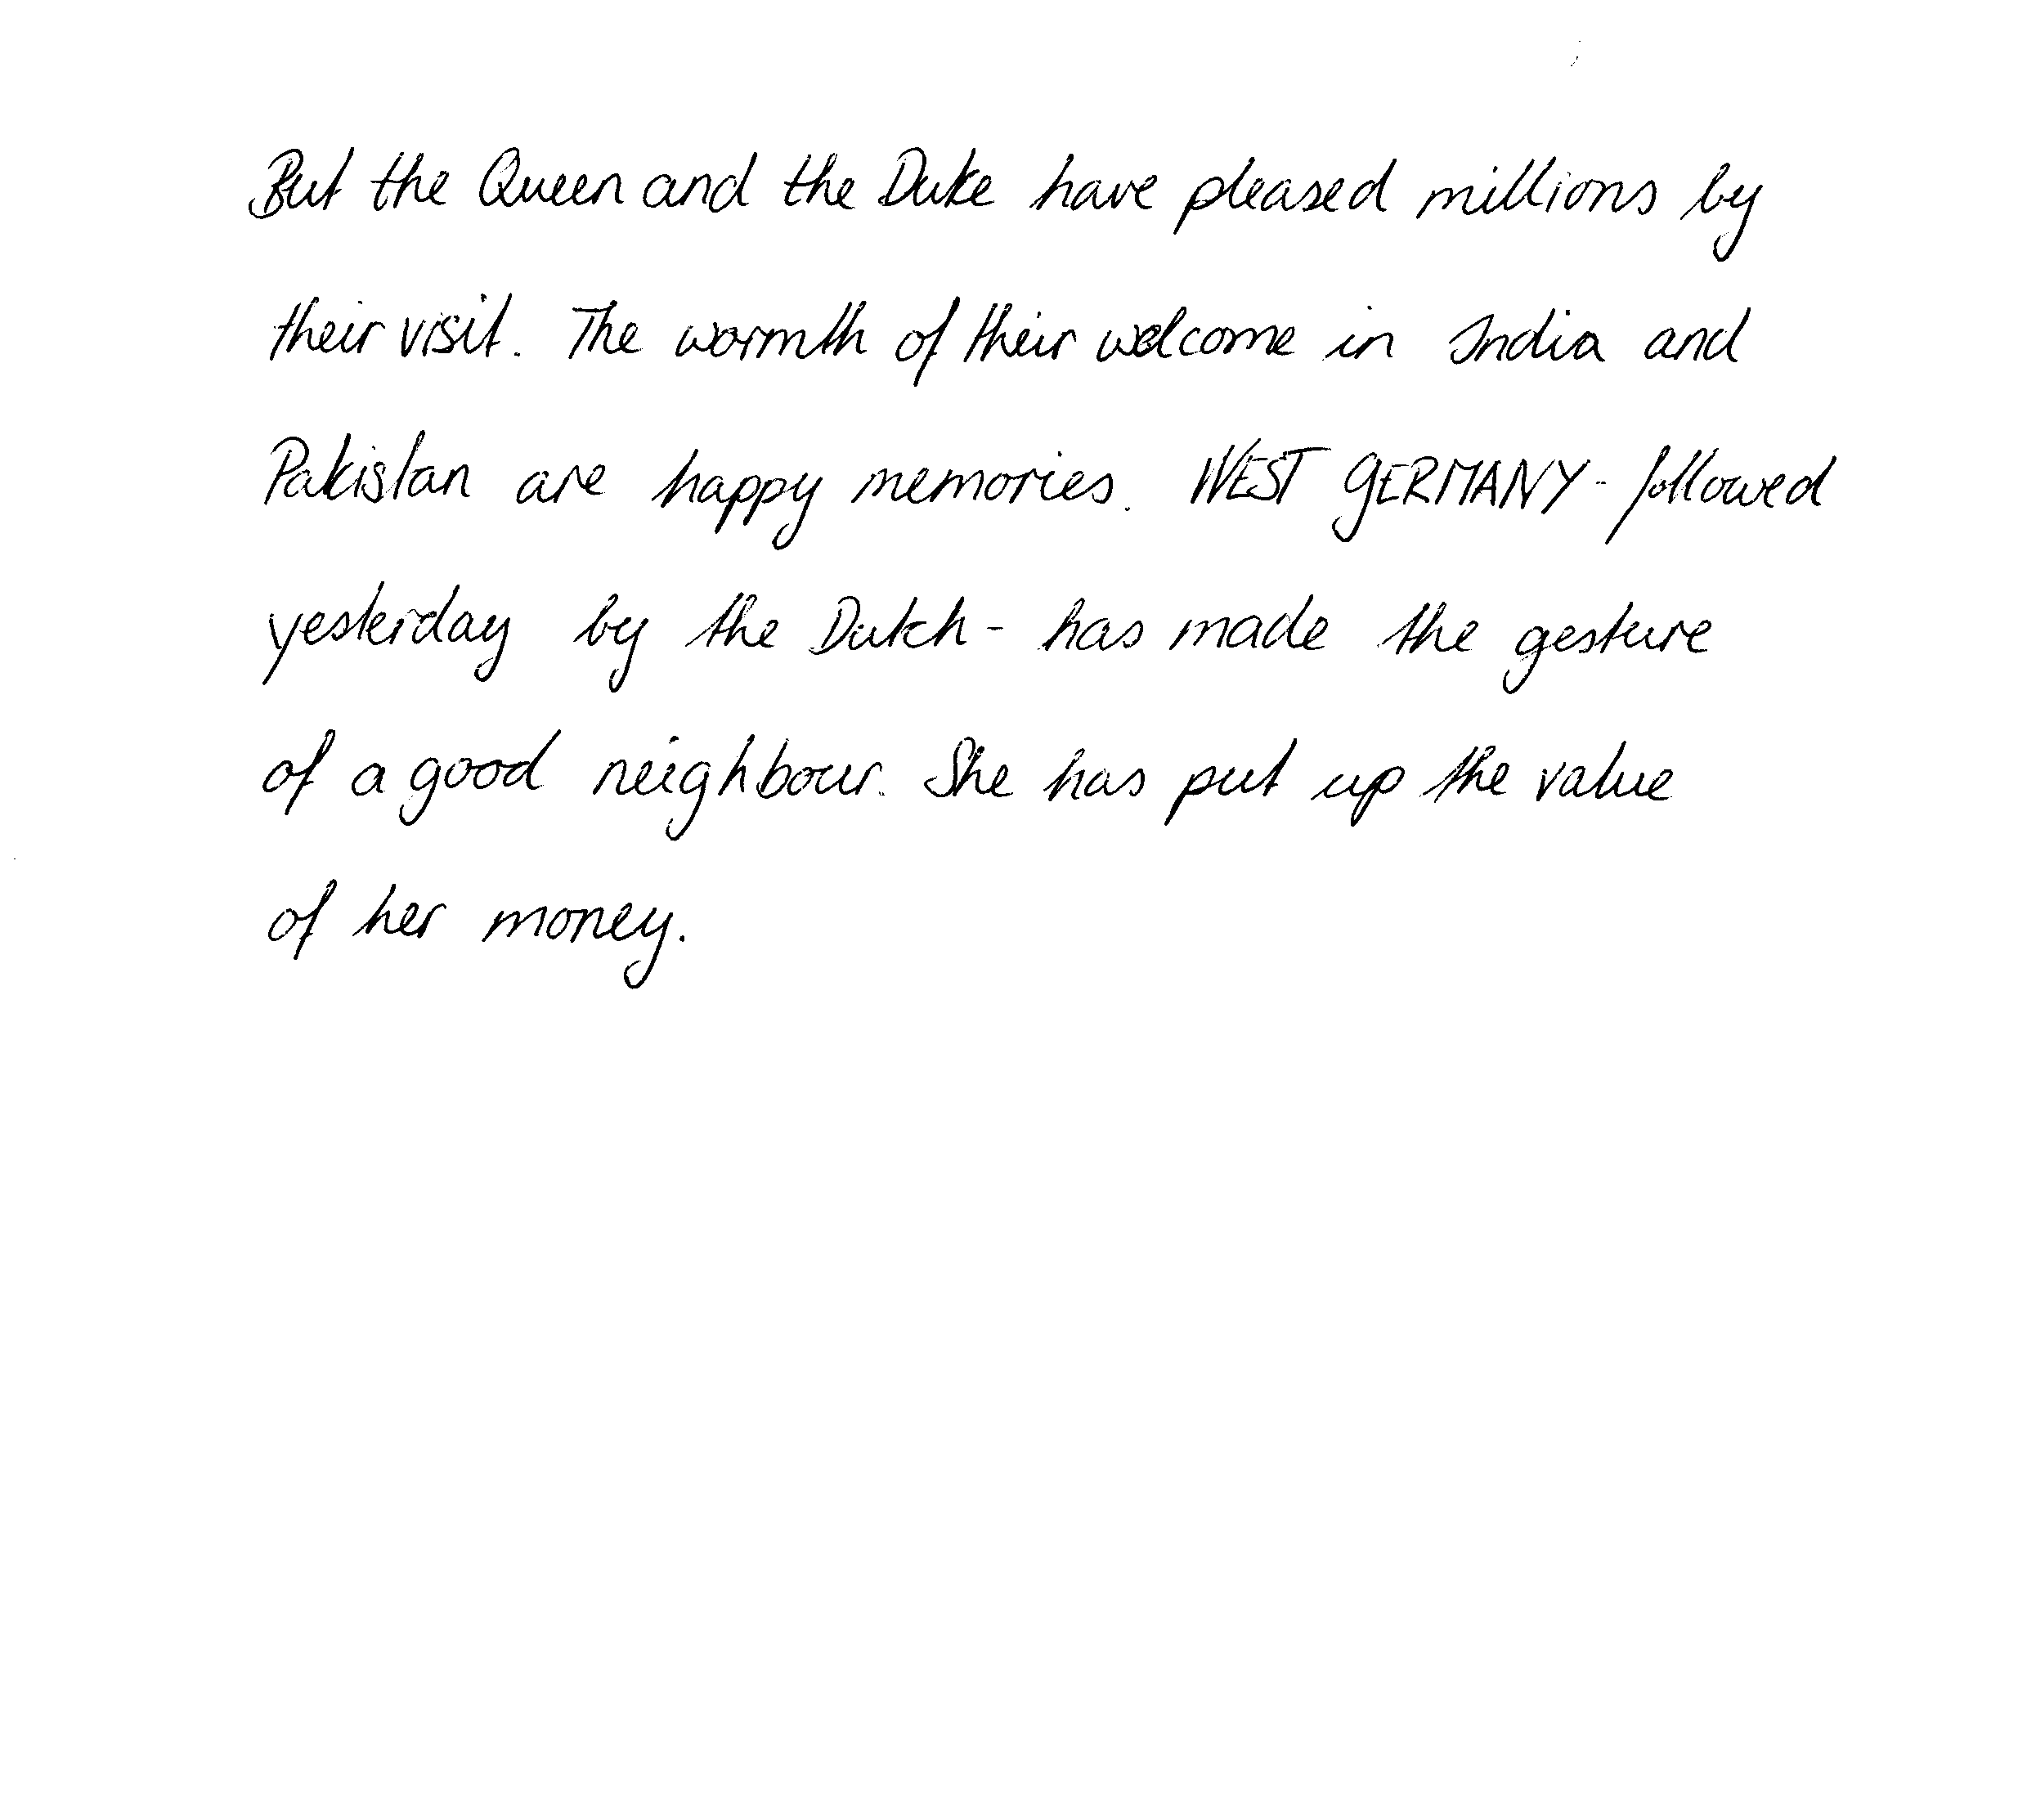 But the Queen and the Duke have pleased millions by
their visit. The warmth of their welcome in India and
Pakistan are happy memories. WEST GERMANY - followed
yesterday by the Dutch - has made the gesture
of a good neighbour. She has put up the value
of her money.